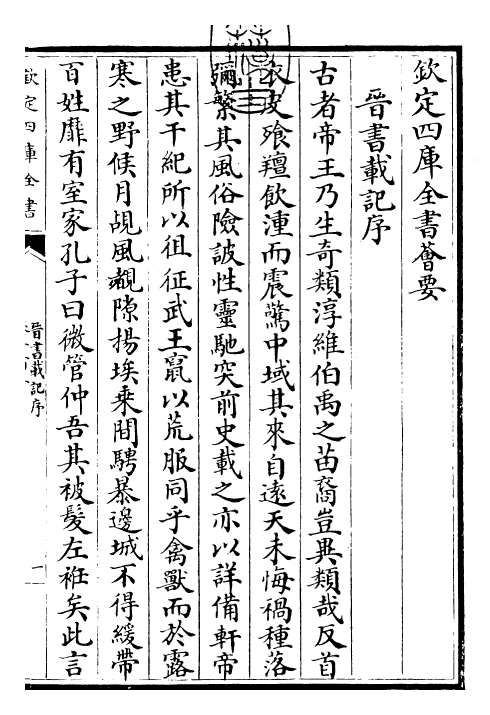 欽定四庫全書薈要
晉書載記序
古者帝王乃生奇類淳維伯禹之苗裔豈異類哉反首
衣皮飱羶飲湩而震驚中域其來自遠天未悔禍種落
彌繁其風俗險詖性靈馳突前史載之亦以詳備軒帝
患其干紀所以徂征武王竄以荒服同乎禽獸而於露
寒之野候月覘風覩隙揚埃乗間騁暴邊城不得緩帶
百姓靡有室家孔子曰微管仲吾其被髪左袵矣此言
欽定四庫全書
晉書載記序
一